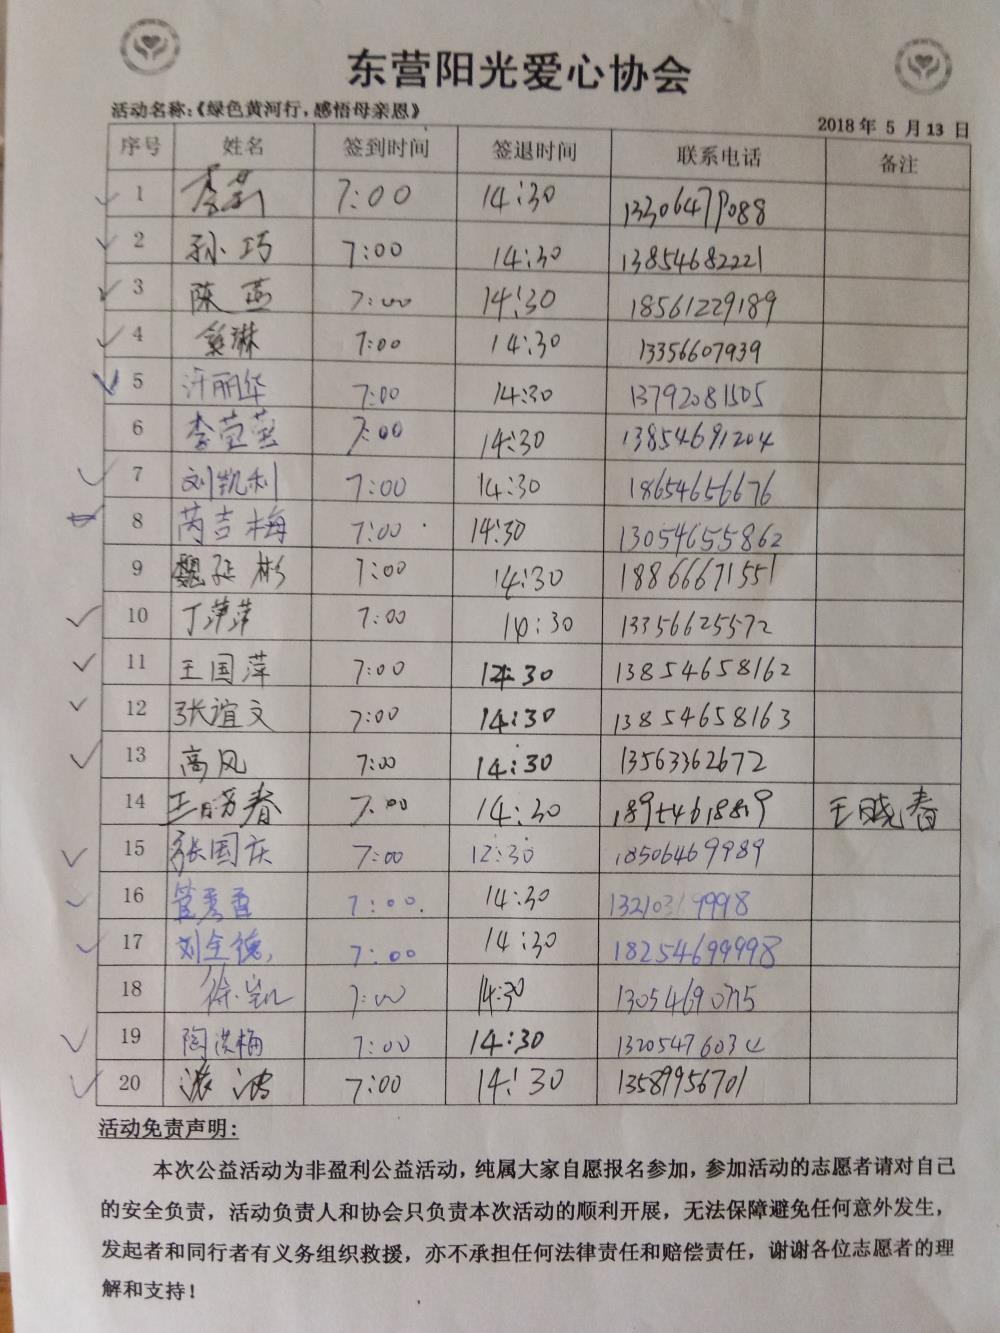 东营阳光爱心协会
活动名称:《绿色黄河行，感悟母亲恩》
2018 年 5 月 13 日
序号 姓名 签到时间 签退时间 联系电话 备注
1 李莉 7:00 14:30 13306479088
2 孙巧 7:00 14:30 13854682221
3 陈燕 7:00 14:30 18561229189
4 琳 7:00 14:30 13356607939
5 汗丽华 7:00 14:30 13792081505
6 李莹莹 7:00 14:30 13854691204
7 刘凯利 7:00 14:30 18654656676
8 芮吉梅 7:00 14:30 13054655862
9 魏延彬 7:00 14:30 18866671551
10 丁萍萍 7:00 14:30 13356625572
11 王国萍 7:00 14:30 13854658162
12 张谊文 7:00 14:30 13854658163
13 高风 7:00 14:30 13563362672
14 王晓春 7:00 14:30 18954618819 王晓春
15 张国庆 7:00 12:30 18506469989
16 管秀香 7:00 14:30 13210319998
17 刘全德 7:00 14:30 18254699998
18 徐凯 7:00 14:30
19 陶洪梅 7:00 14:30 13205476034
20 7:00 14:30 13589956701
活动免责声明:
本次公益活动为非盈利公益活动，纯属大家自愿报名参加，参加活动的志愿者请对自己
的安全负责，活动负责人和协会只负责本次活动的顺利开展，无法保障避免任何意外发生，
发起者和同行者有义务组织救援，亦不承担任何法律责任和赔偿责任，谢谢各位志愿者的理
解和支持！